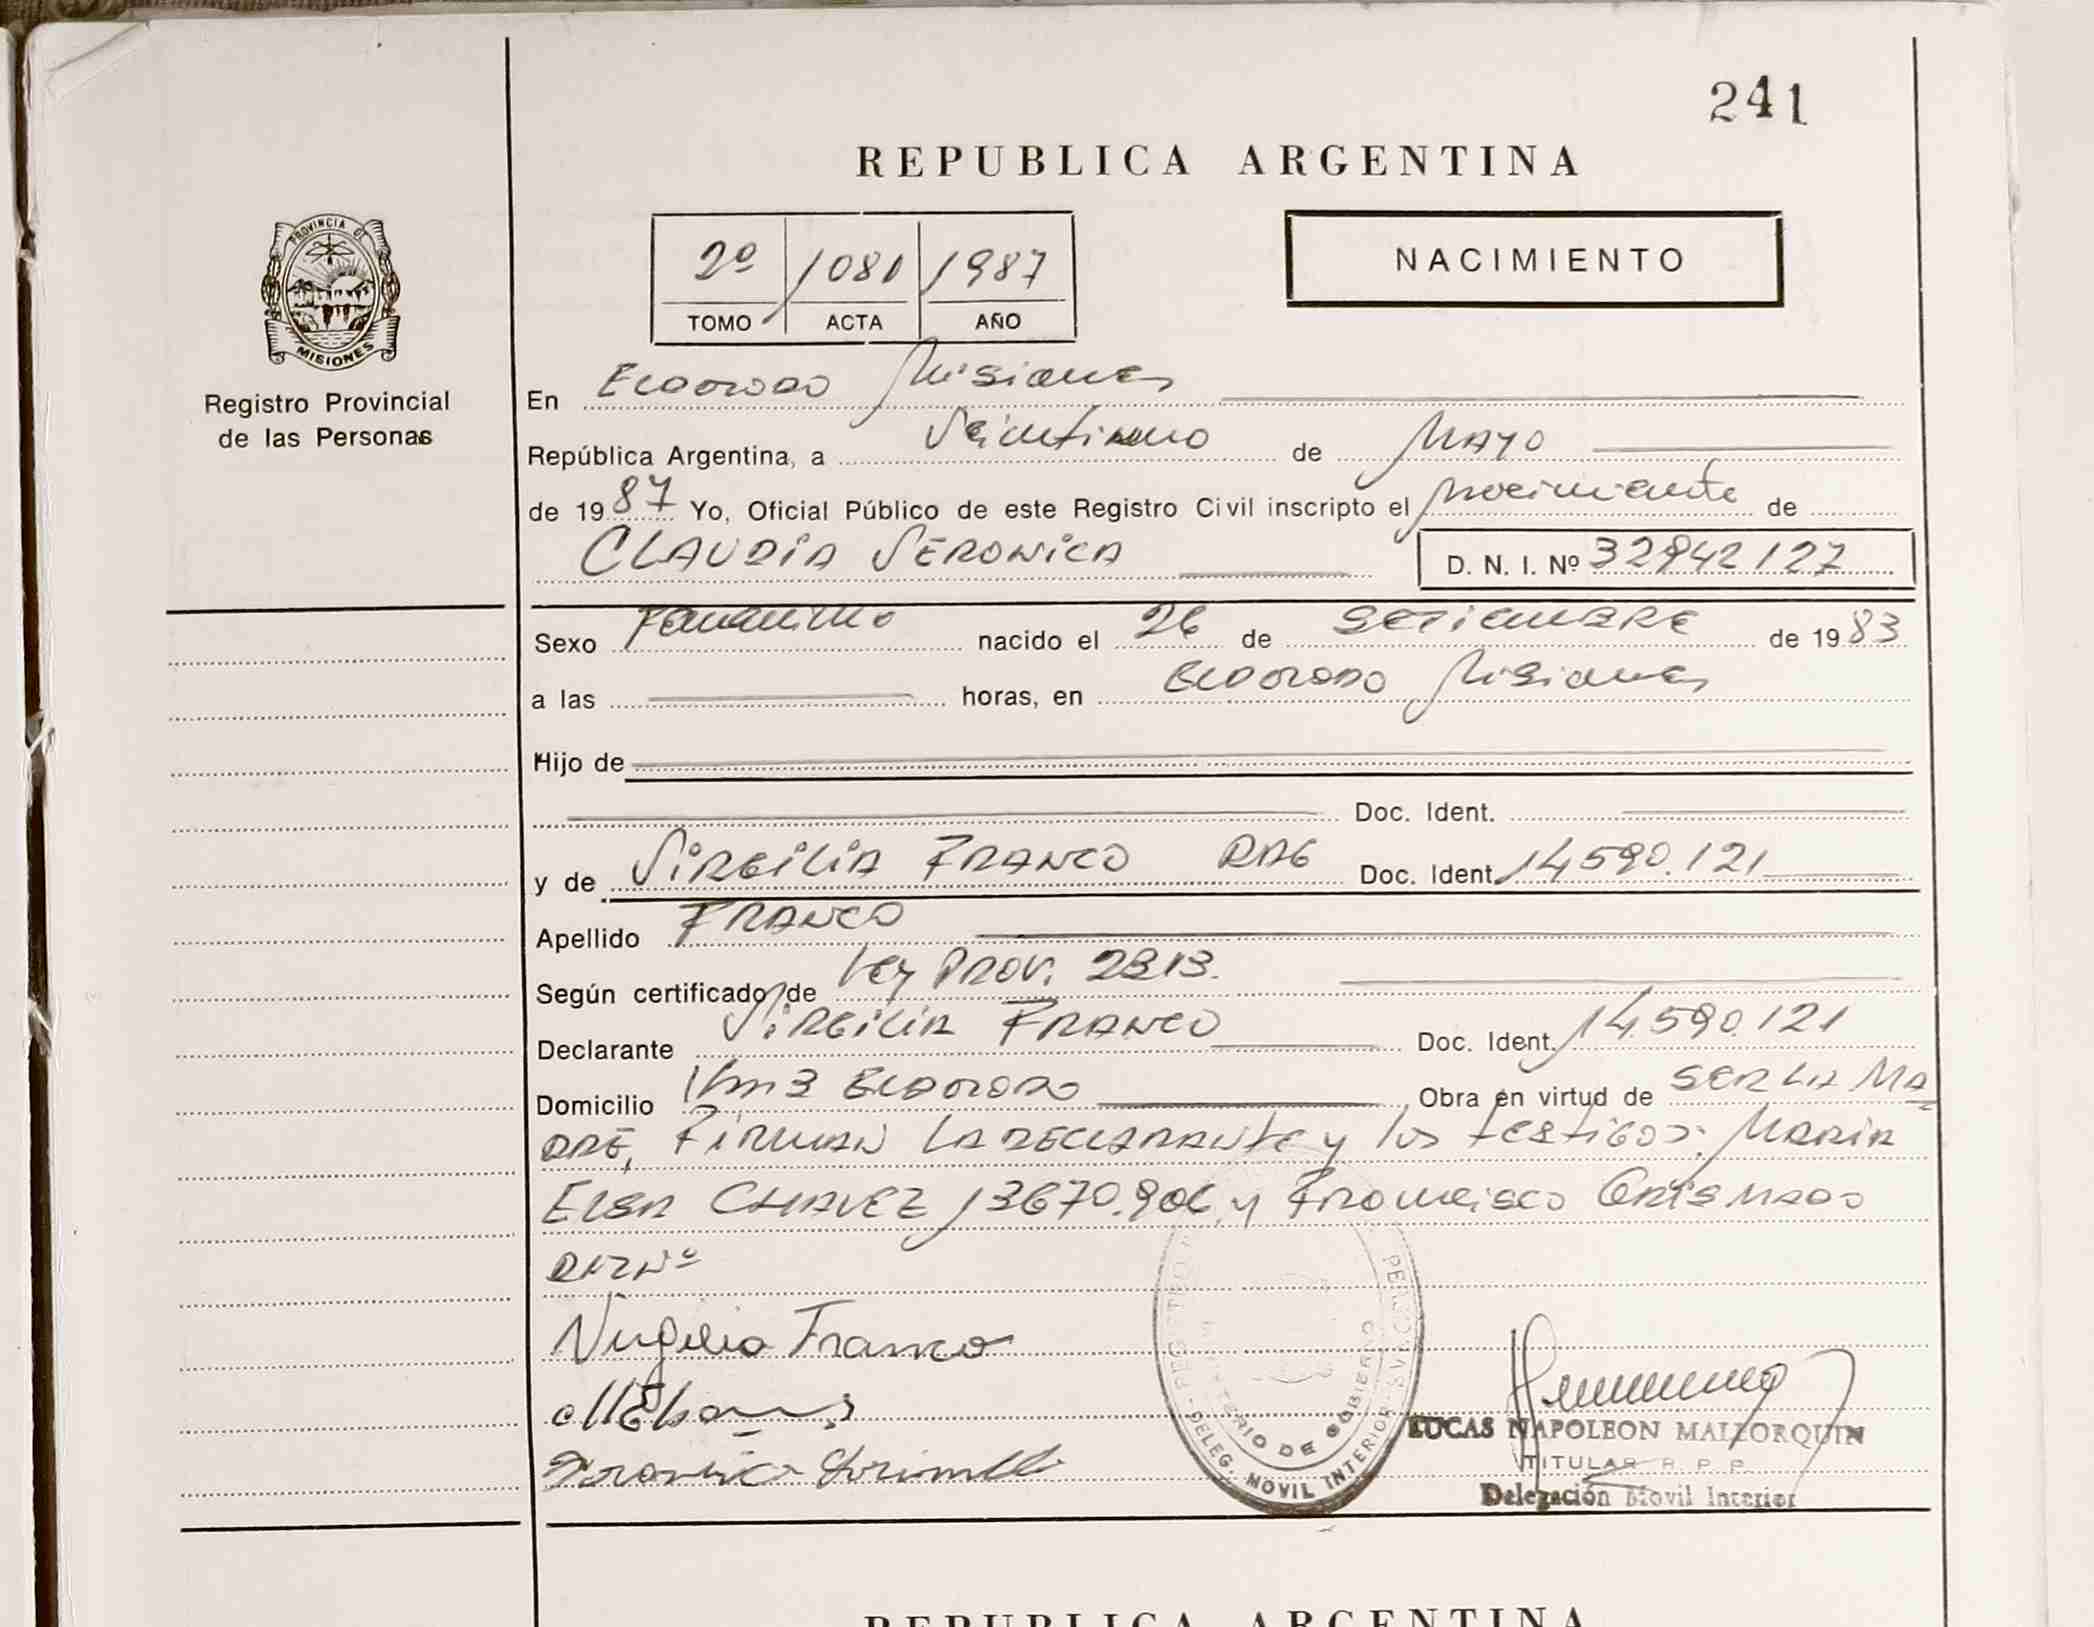 241
REPUBLICA ARGENTINA
PROVINCIA DE
MISIONES
Registro Provincial
de las Personas
2º 1081 1987
TOMO ACTA AÑO
NACIMIENTO
En Eldorado Misiones
República Argentina, a Veintiuno de MAYO
de 1987 Yo, Oficial Público de este Registro Civil inscripto el Nacimiento de
CLAUDIA VERONICA D. N. I. Nº 32942127
Sexo Femenino nacido el 26 de SETIEMBRE de 1983
a las horas, en ELDORADO Misiones
Hijo de
Doc. Ident.
y de VIRGILIA FRANCO Doc. Ident. 14590.121
Apellido FRANCO
Según certificado de Ley PROV. 2313.
Declarante VIRGILIA FRANCO Doc. Ident. 14.590.121
Domicilio Km 3 ELDORADO Obra en virtud de SER LA MA
DRE, FIRMAN LA DECLARANTE y los testigos: MARIA
ELSA CHAVEZ 13670.906 y Francisco GRISMADO
DNI Nº
Virgilia Franco
MINISTERIO DE GOBIERNO
DELEG. MOVIL INTERIOR
LUCAS NAPOLEON MALLORQUIN
TITULAR R. P. P.
Delegación Movil Interior
REPUBLICA ARGENTINA